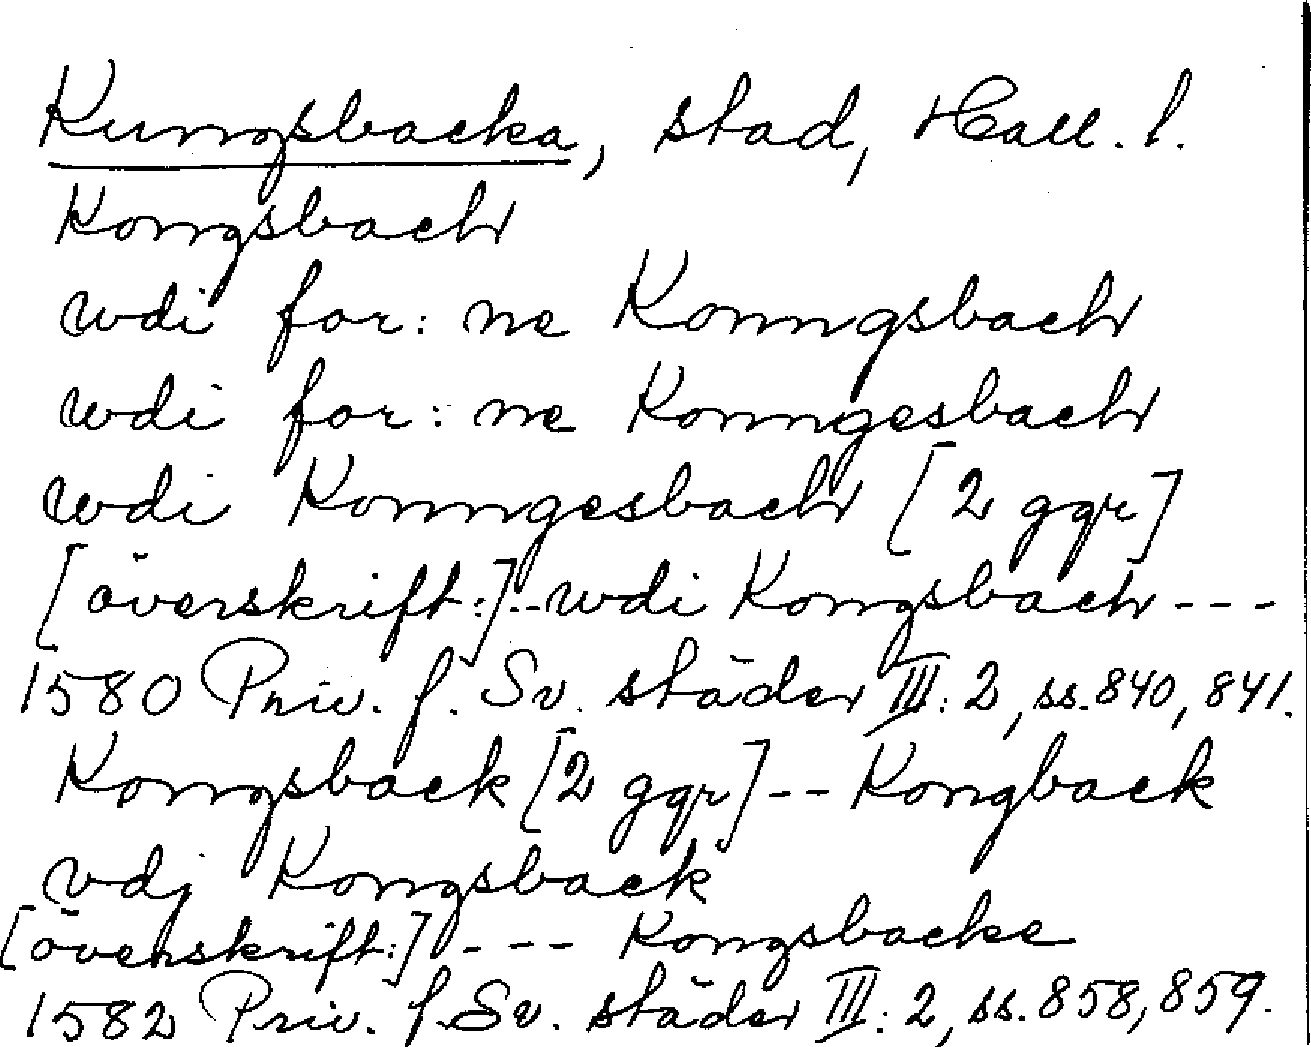 Kungsbacka, stad, Hall. l.
Kongsbach
wdi for: ne Konngsbach
wdi for: ne Konngesbach
wdi Konngesbach [2 ggr]
[överskrift:]--wdi Kongsbach---
1580 Priv. f. Sv. städer III: 2, ss. 840, 841.
Kongsback [2 ggr]-- Kongback
vdj Kongsback
[överskrift:] --- Kongsbacke
1582 Priv. f. Sv. städer III: 2, ss. 858, 859.